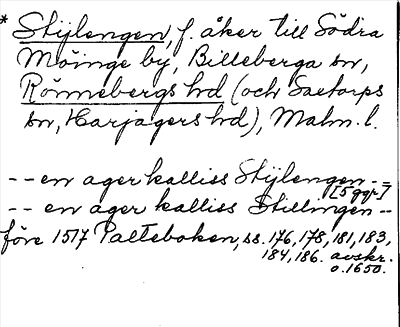 * Stijlengen, f. åker till Södra
Möinge by, Billeberga sn,
Rönnebergs hd (och Saxtorps
sn, Harjagers hd), Malm. l.
-- en ager kalliss Stijlengen --
[5 ggr]
-- en ager kalliss Stillingen --
före 1517 Palteboken, ss. 176, 178, 181, 183,
184, 186. avskr.
o. 1650.